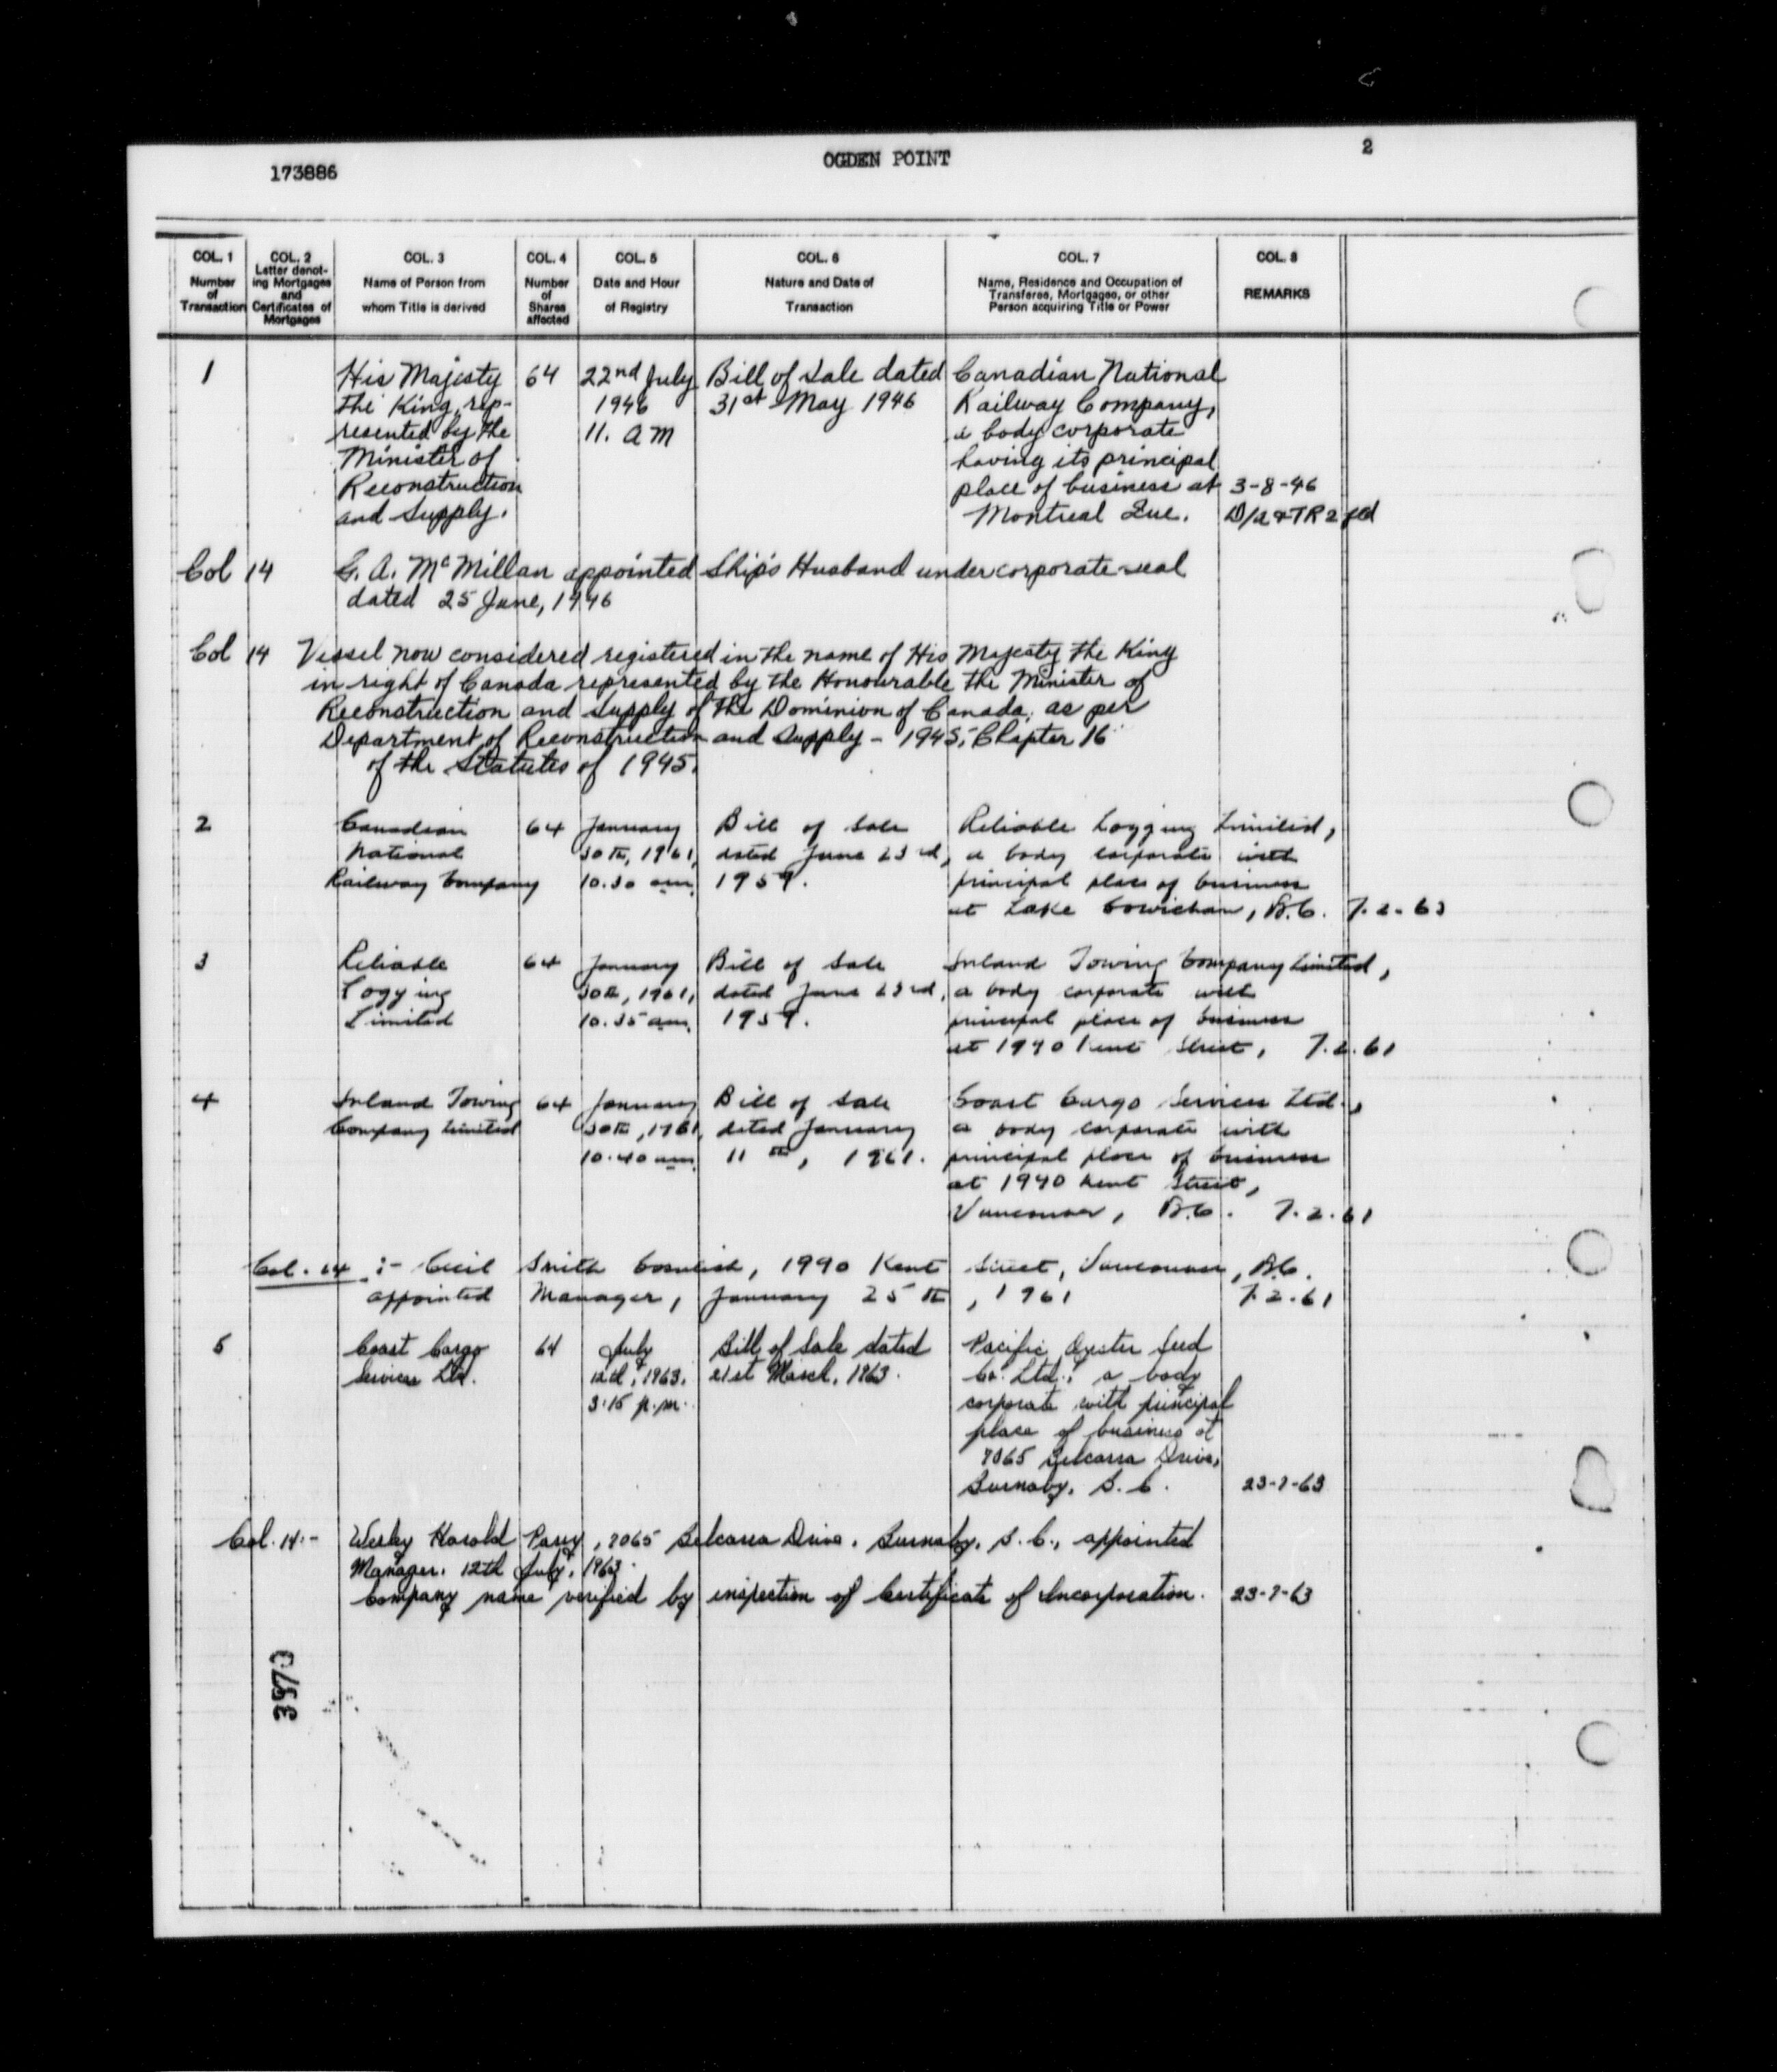 173886
OGDEN POINT
2
COL. 1 Number of Transaction
COL. 2 Letter denoting Mortgages and Certificates of Mortgages
COL. 3 Name of Person from whom Title is derived
COL. 4 Number of Shares affected
COL. 5 Date and Hour of Registry
COL. 6 Nature and Date of Transaction
COL. 7 Name, Residence and Occupation of Transferee, Mortgagee, or other Person acquiring Title or Power
COL. 8 REMARKS
1 His Majesty 64 22nd July Bill of Sale dated Canadian National
the King, rep- 1946 31st May 1946 Railway Company,
resented by the 11. AM a body corporate
Minister of having its principal
Reconstruction place of business at 3-8-46
and Supply. Montreal Que. D/A & TR 2
Col 14 G. A. McMillan appointed Ship's Husband under corporate seal
dated 25 June, 1946
Col 14 Vessel now considered registered in the name of His Majesty the King
in right of Canada represented by the Honourable the Minister of
Reconstruction and Supply of the Dominion of Canada, as per
Department of Reconstruction and Supply - 1945, Chapter 16
of the Statutes of 1945.
2 Canadian 64 January Bill of Sale Reliable Logging Limited,
National 30th, 1961, dated June 23rd, a body corporate with
Railway Company 10.30 am. 1959. principal place of business
at Lake Cowichan, B.C. 7.2.
3 Reliable 64 January Bill of Sale Inland Towing Company Limited,
Logging 30th, 1961, dated June 23rd, a body corporate with
Limited 10.35 am. 1959. principal place of business
at Kent Street, 7.2.61
4 Inland Towing 64 January Bill of Sale Coast Cargo Services Ltd.,
Company Limited 30th, 1961, dated January a body corporate with
10.40 am. 11th, 1961. principal place of business
at Kent Street,
Vancouver, B.C. 7.2.61
Col. 14 :- Cecil Smith Cornish, 1990 Kent Street, Vancouver, B.C.
appointed Manager, January 25th, 1961 7.2.61
5 Coast Cargo 64 July Bill of Sale dated Pacific Oyster Seed
Services Ltd. 12th, 1963, 21st March, 1963. Co. Ltd., a body
3.15 p.m. corporate with principal
place of business at
7065 Belcarra Drive,
Burnaby, B.C. 23-7-63
Col. 14:- Wesley Harold Parry, 7065 Belcarra Drive, Burnaby, B.C., appointed
Manager, 12th July, 1963.
Company name verified by inspection of Certificate of Incorporation. 23-7-63